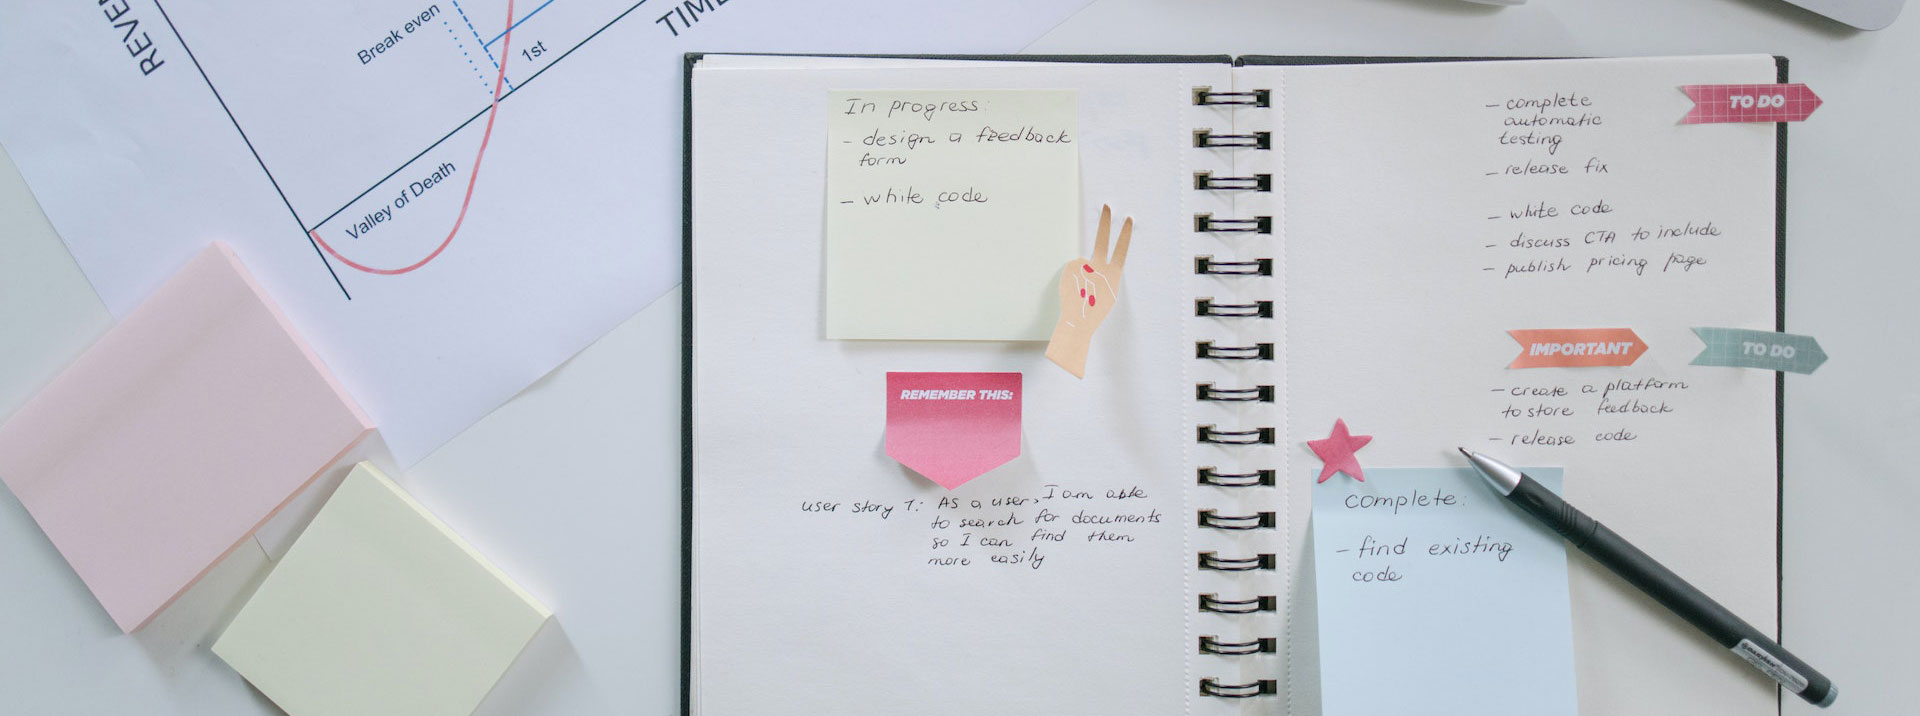 REVEN
TIME
Break even
1st
Valley of Death
In progress:
- design a feedback
form
- white code
REMEMBER THIS:
user story 1: As a user, I am able
to search for documents
so I can find them
more easily
TO DO
- complete
automatic
testing
- release fix
- white code
- discuss CTA to include
- publish pricing page
IMPORTANT
TO DO
- create a platform
to store feedback
- release code
complete:
- find existing
code